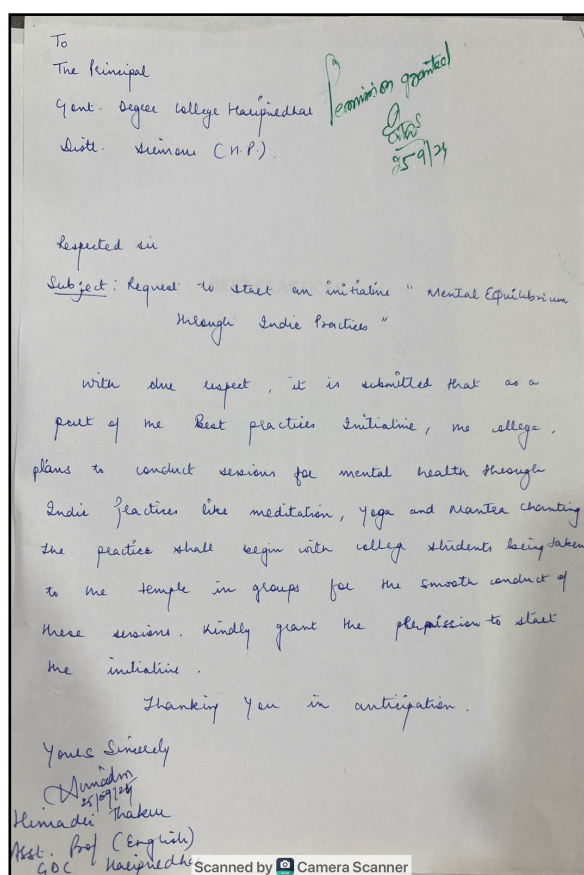 To
The Principal
Govt. Degree College Haripurdhar
Distt. Sirmour (H.P.)
Permission granted
25/9/24
Respected sir
Subject: Request to start an initiative " Mental Equilibrium
through Indic Practices "
With due respect, it is submitted that as a
part of the Best practices Initiative, the college,
plans to conduct sessions for mental health through
Indic Practices like meditation, Yoga and Mantra chanting
The practice shall begin with college students being taken
to the temple in groups for the smooth conduct of
these sessions. Kindly grant the permission to start
the initiative.
Thanking You in anticipation.
Yours Sincerely
25/09/24
Himadri Thakur
Asst. Prof (English)
GDC Haripurdhar
Scanned by Camera Scanner